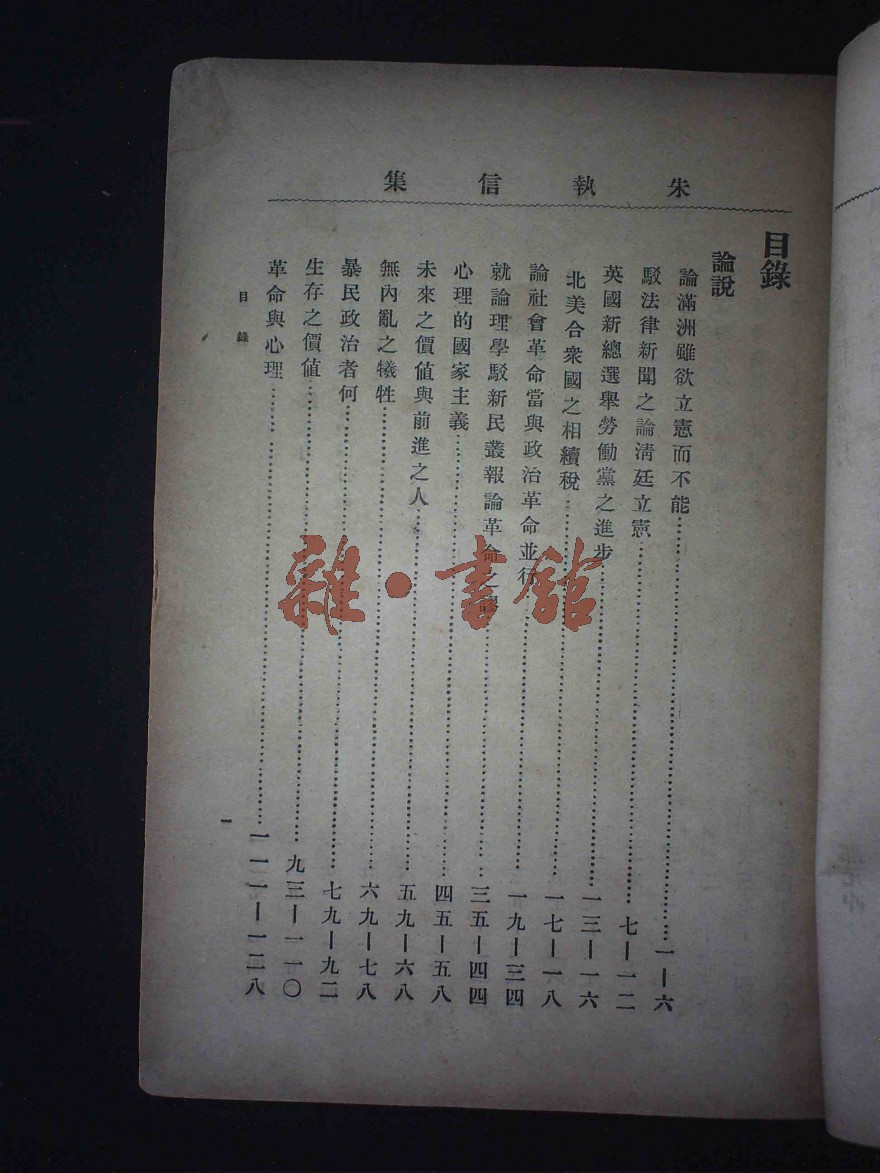 朱執信集
目錄
論說
論滿洲雖欲立憲而不能……一—六
駁法律新聞之論淸廷立憲……七—一二
英國新總選舉勞働黨之進步……一三—一六
北美合衆國之相續稅……一七—一八
論社會革命當與政治革命並行……一九—三四
就論理學駁新民叢報論革命之謬……三五—四四
心理的國家主義……四五—五八
未來之價值與前進之人……五九—六八
無內亂之犧牲……六九—七八
暴民政治者何……七九—九二
生存之價値……九三—一一〇
革命與心理……一一一—一二八
目錄
一
雜·書館